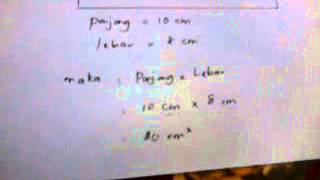 panjang = 10 cm
lebar = 8 cm
maka : Panjang x Lebar
= 10 cm x 8 cm
= 80 cm²